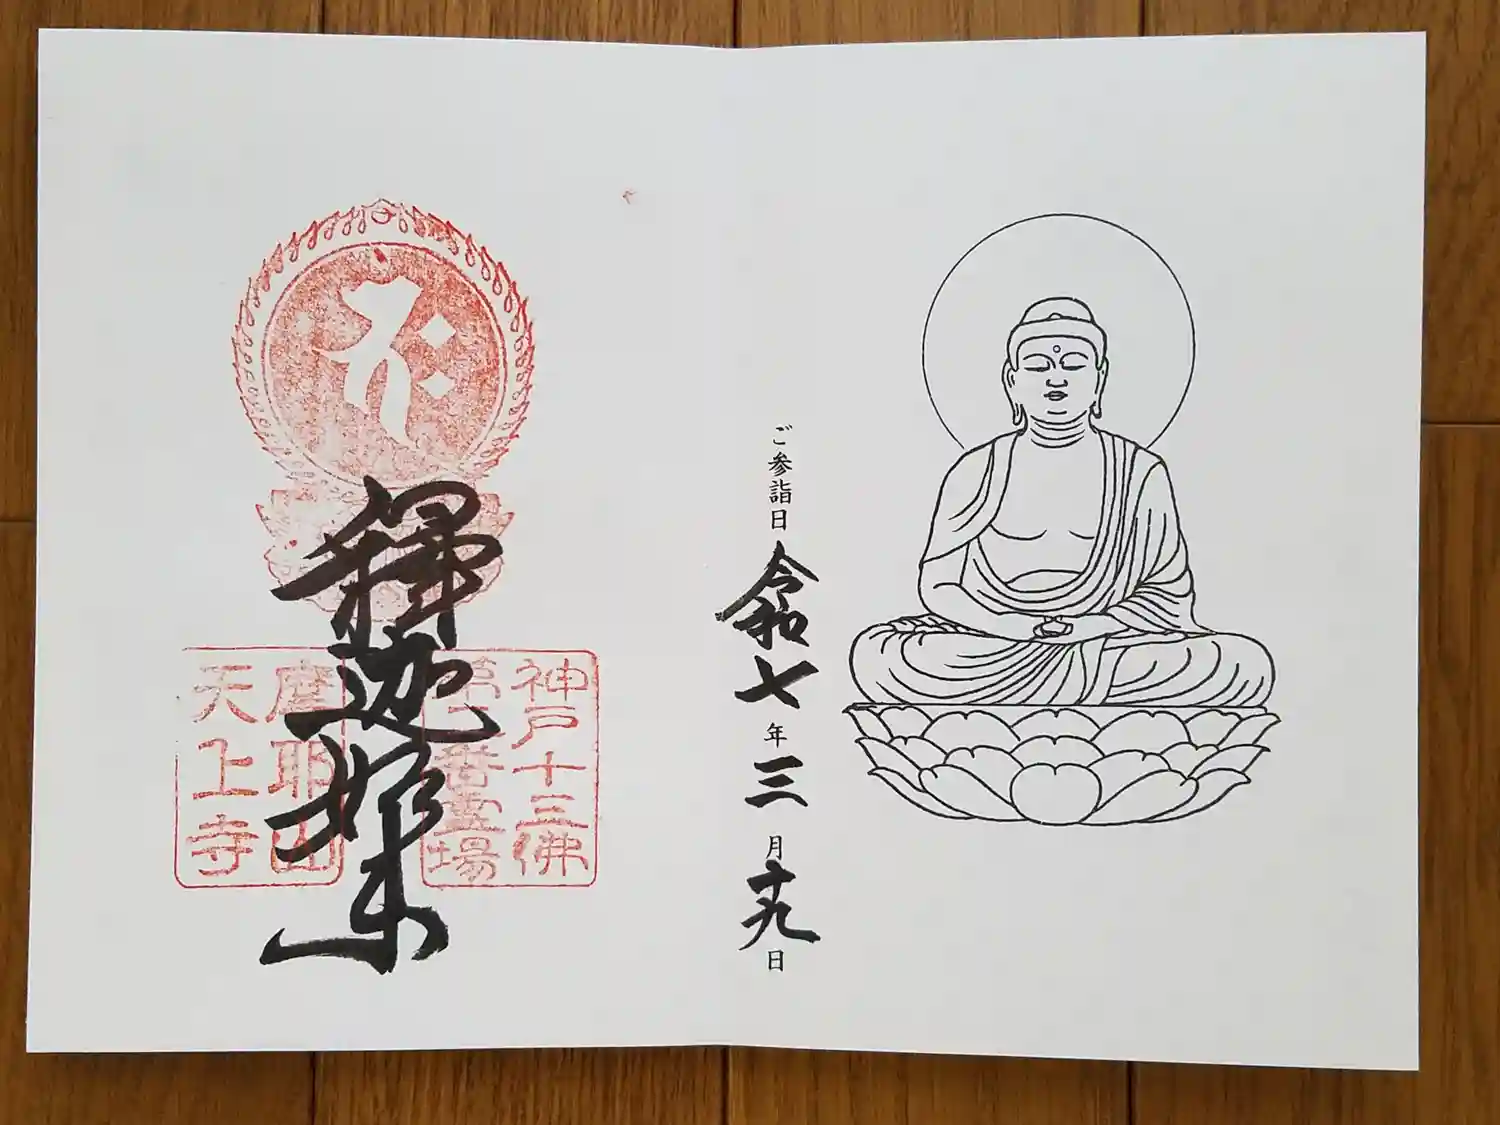 ご参詣日 令和七年三月十九日
神戸十三佛
第二番霊場
釋迦如来
摩耶山
天上寺